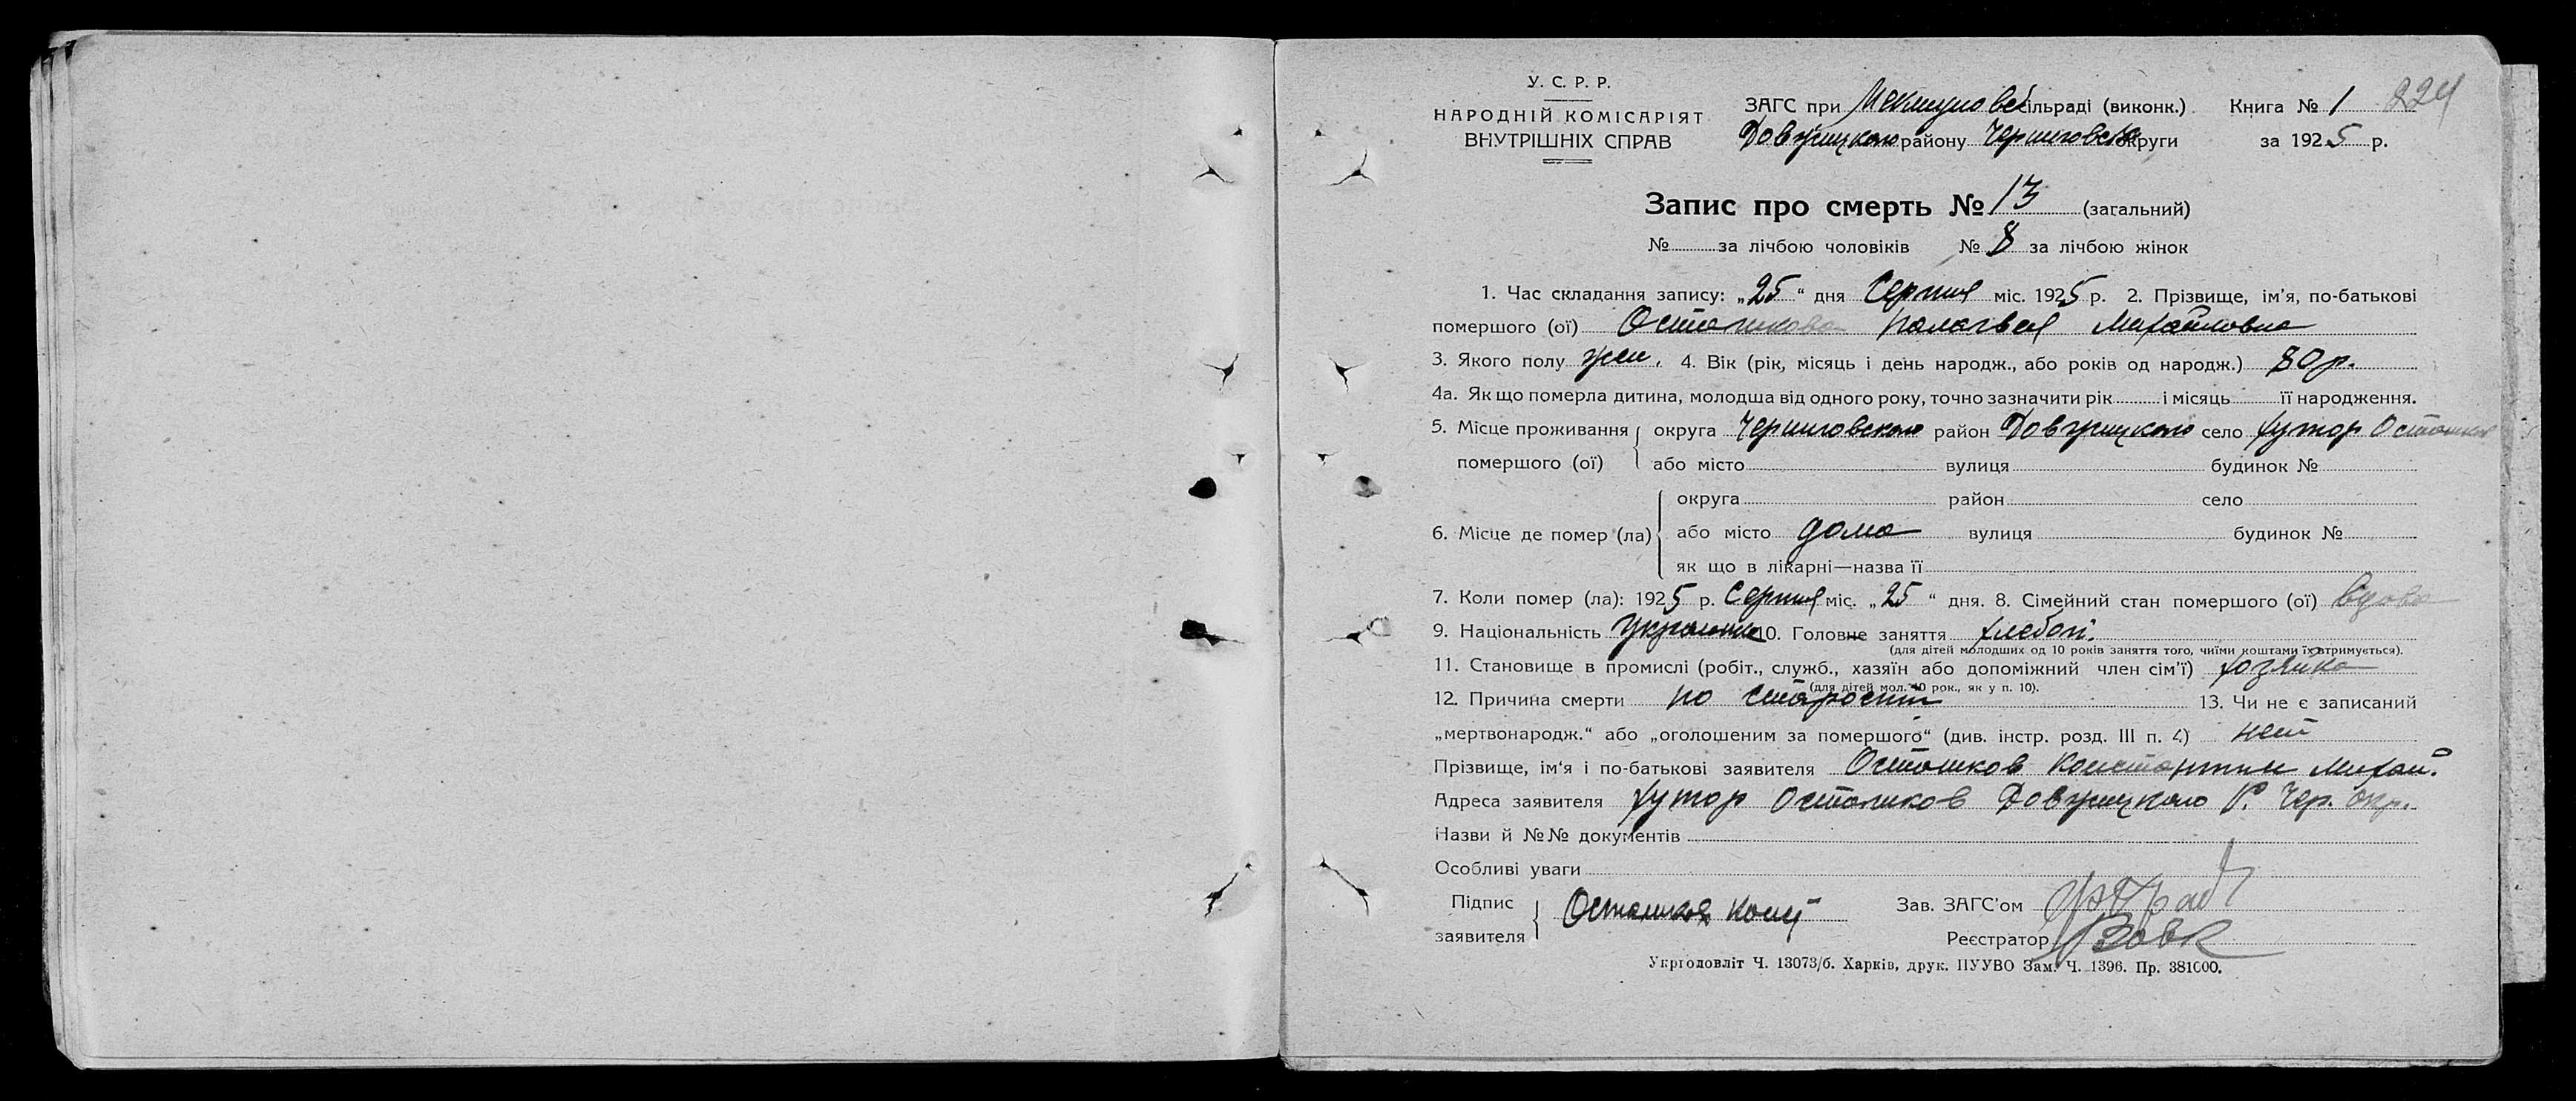 У. С. Р. Р.
НАРОДНІЙ КОМІСАРІЯТ
ВНУТРІШНІХ СПРАВ
ЗАГС при сільраді (виконк.) Книга № 1 224
Довжицкого району Черниговской округи за 1925 р.
Запис про смерть № 13 (загальний)
№ за лічбою чоловіків № 8 за лічбою жінок
1. Час складання запису: „25“ дня Серпня міс. 1925 р. 2. Прізвище, ім'я, по-батькові
помершого (ої) Осташкова Палагвея Михайловна
3. Якого полу жен. 4. Вік (рік, місяць і день народж., або років од народж.) 80 р.
4а. Як що померла дитина, молодша від одного року, точно зазначити рік і місяць її народження.
5. Місце проживання помершого (ої) округа Черниговского район Довжицкого село хутор Осташков
або місто вулиця будинок №
округа район село
6. Місце де помер (ла) або місто дома вулиця будинок №
як що в лікарні—назва її
7. Коли помер (ла): 1925 р. Серпня міс. „25“ дня. 8. Сімейний стан помершого (ої) вдова
9. Національність Украинка 10. Головне заняття хлебоп.
(для дітей молодших од 10 років заняття того, чиїми коштами їх втримується).
11. Становище в промислі (робіт., служб., хазяїн або допоміжний член сім'ї) хозяйка
(для дітей мол. 10 рок., як у п. 10).
12. Причина смерти по старости 13. Чи не є записаний
„мертвонародж.“ або „оголошеним за помершого“ (див. інстр. розд. III п. 4) нет
Прізвище, ім'я і по-батькові заявителя Осташков Константин Михай.
Адреса заявителя хутор Осташков Довжицкого Р. Чер. окр.
Назви й №№ документів
Особливі уваги
Підпис заявителя Осташков Зав. ЗАГС'ом
Реєстратор Вовк
Укрголовліт Ч. 13073/б. Харків, друк. ПУУВО Зам. Ч. 1396. Пр. 381000.